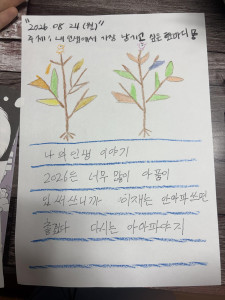 "2026. 08. 24 (월)"
주제: 내 인생에서 가장 남기고 싶은 한마디
나의 인생 이야기
2026은 너무 많이 아픔이
있써쓰니까 이재는 안아파쓰면
좋겠다 다시는 아아파야지